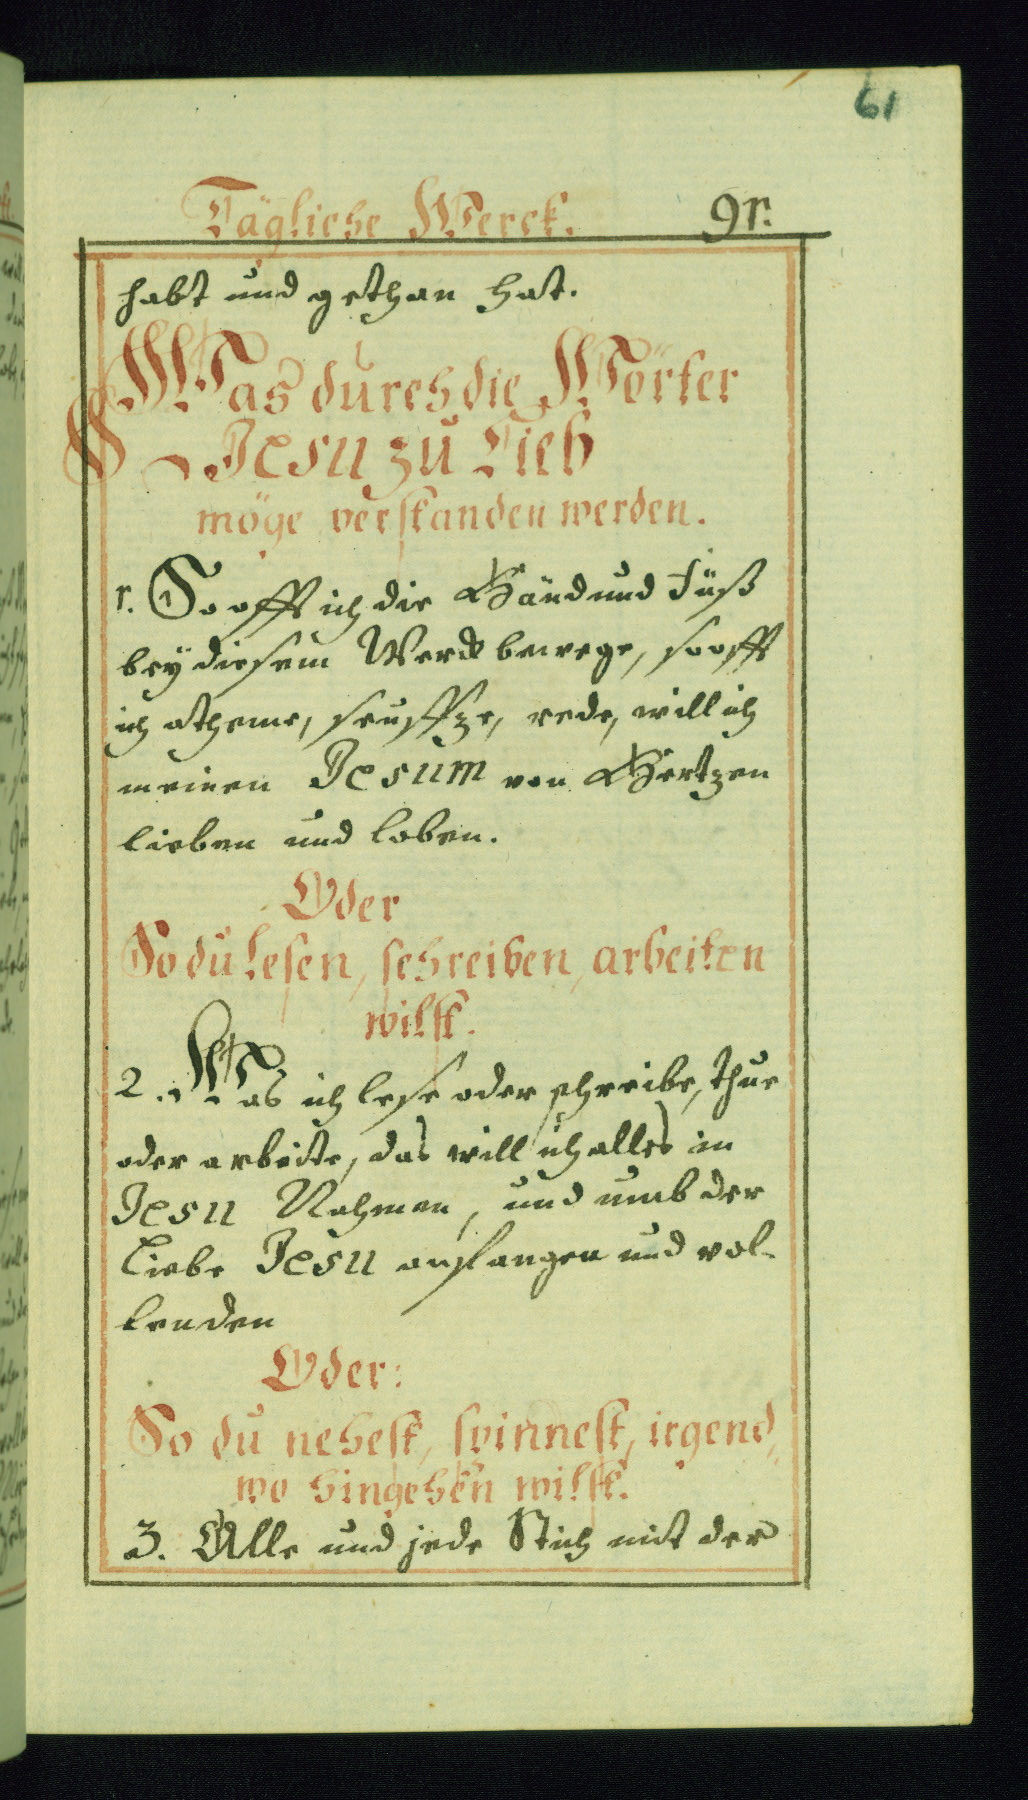 61
Tägliche Werck. 91.
habt und gethan hat.
Was durch die Wörter
Jesu zu Lieb
möge verstanden werden.
1. So offt ich die Händ und Füß
bey diesem Werck bewege, so offt
ich atheme, seuffze, rede, will ich
meinen Jesum von Hertzen
lieben und loben.
Oder
So du lesen, schreiben, arbeiten
wilst.
2. Was ich lese oder schreibe, thue
oder arbeite, das will ich alles im
Jesu Nahmen, und umb der
Liebe Jesu anfangen und vol-
lenden
Oder:
So du nehest, spinnest, irgend,
wo hingehen wilst.
3. Alle und jede Stich mit der